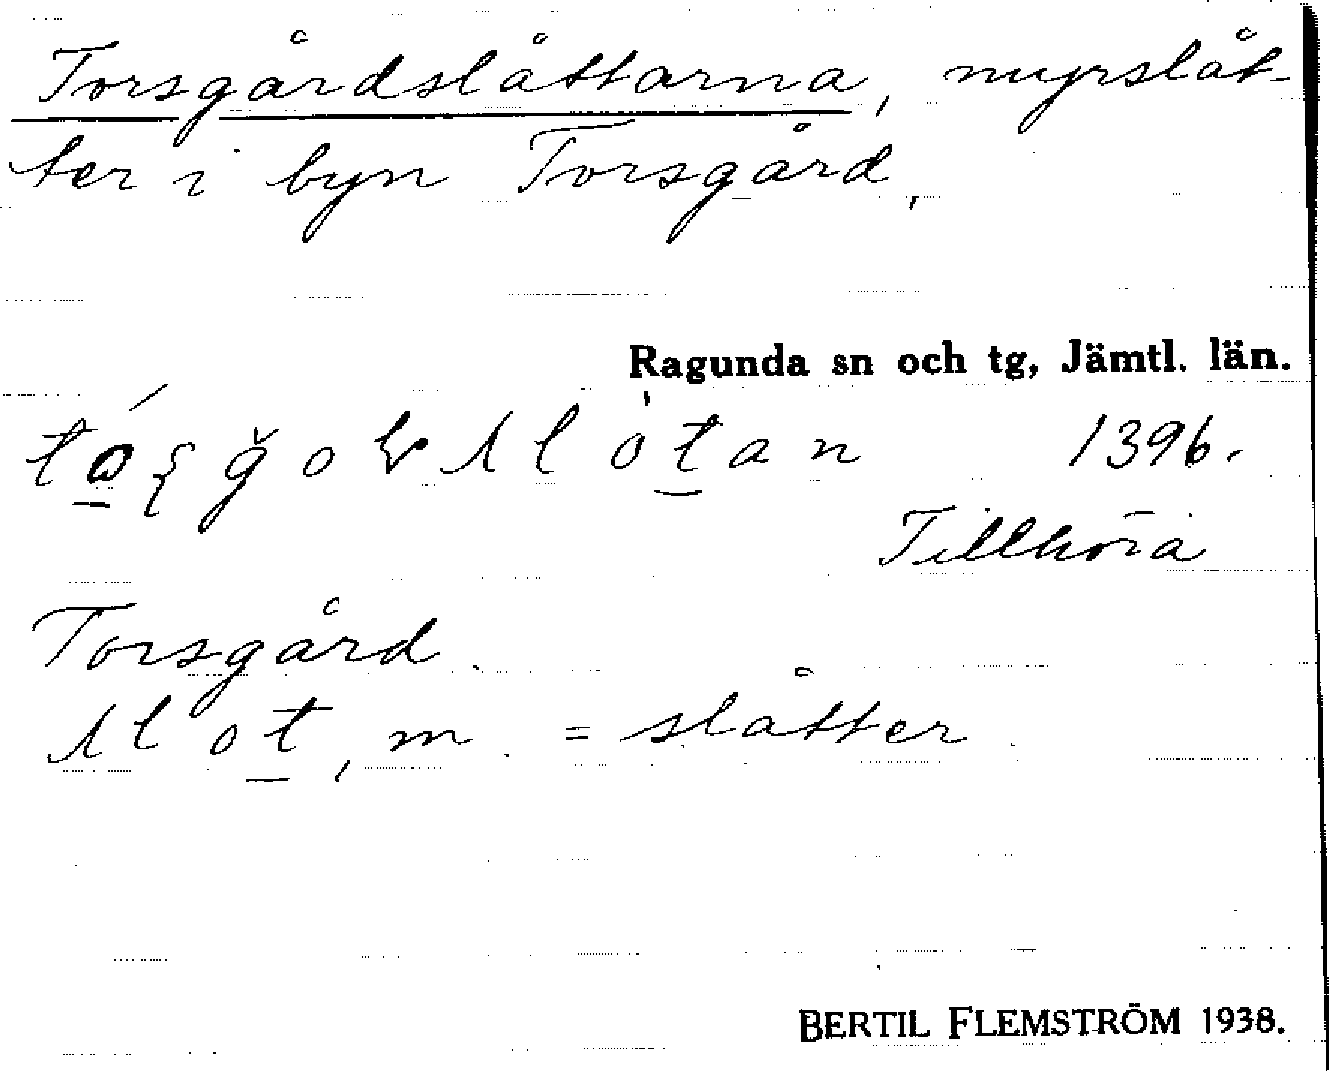 Torsgårdslåttarna, myrslåt-
ter i byn Torsgård,
Ragunda sn och tg, Jämtl. län.
1396.
Tillhöra
Torsgård.
slot, m. = slåtter.
BERTIL FLEMSTRÖM 1938.